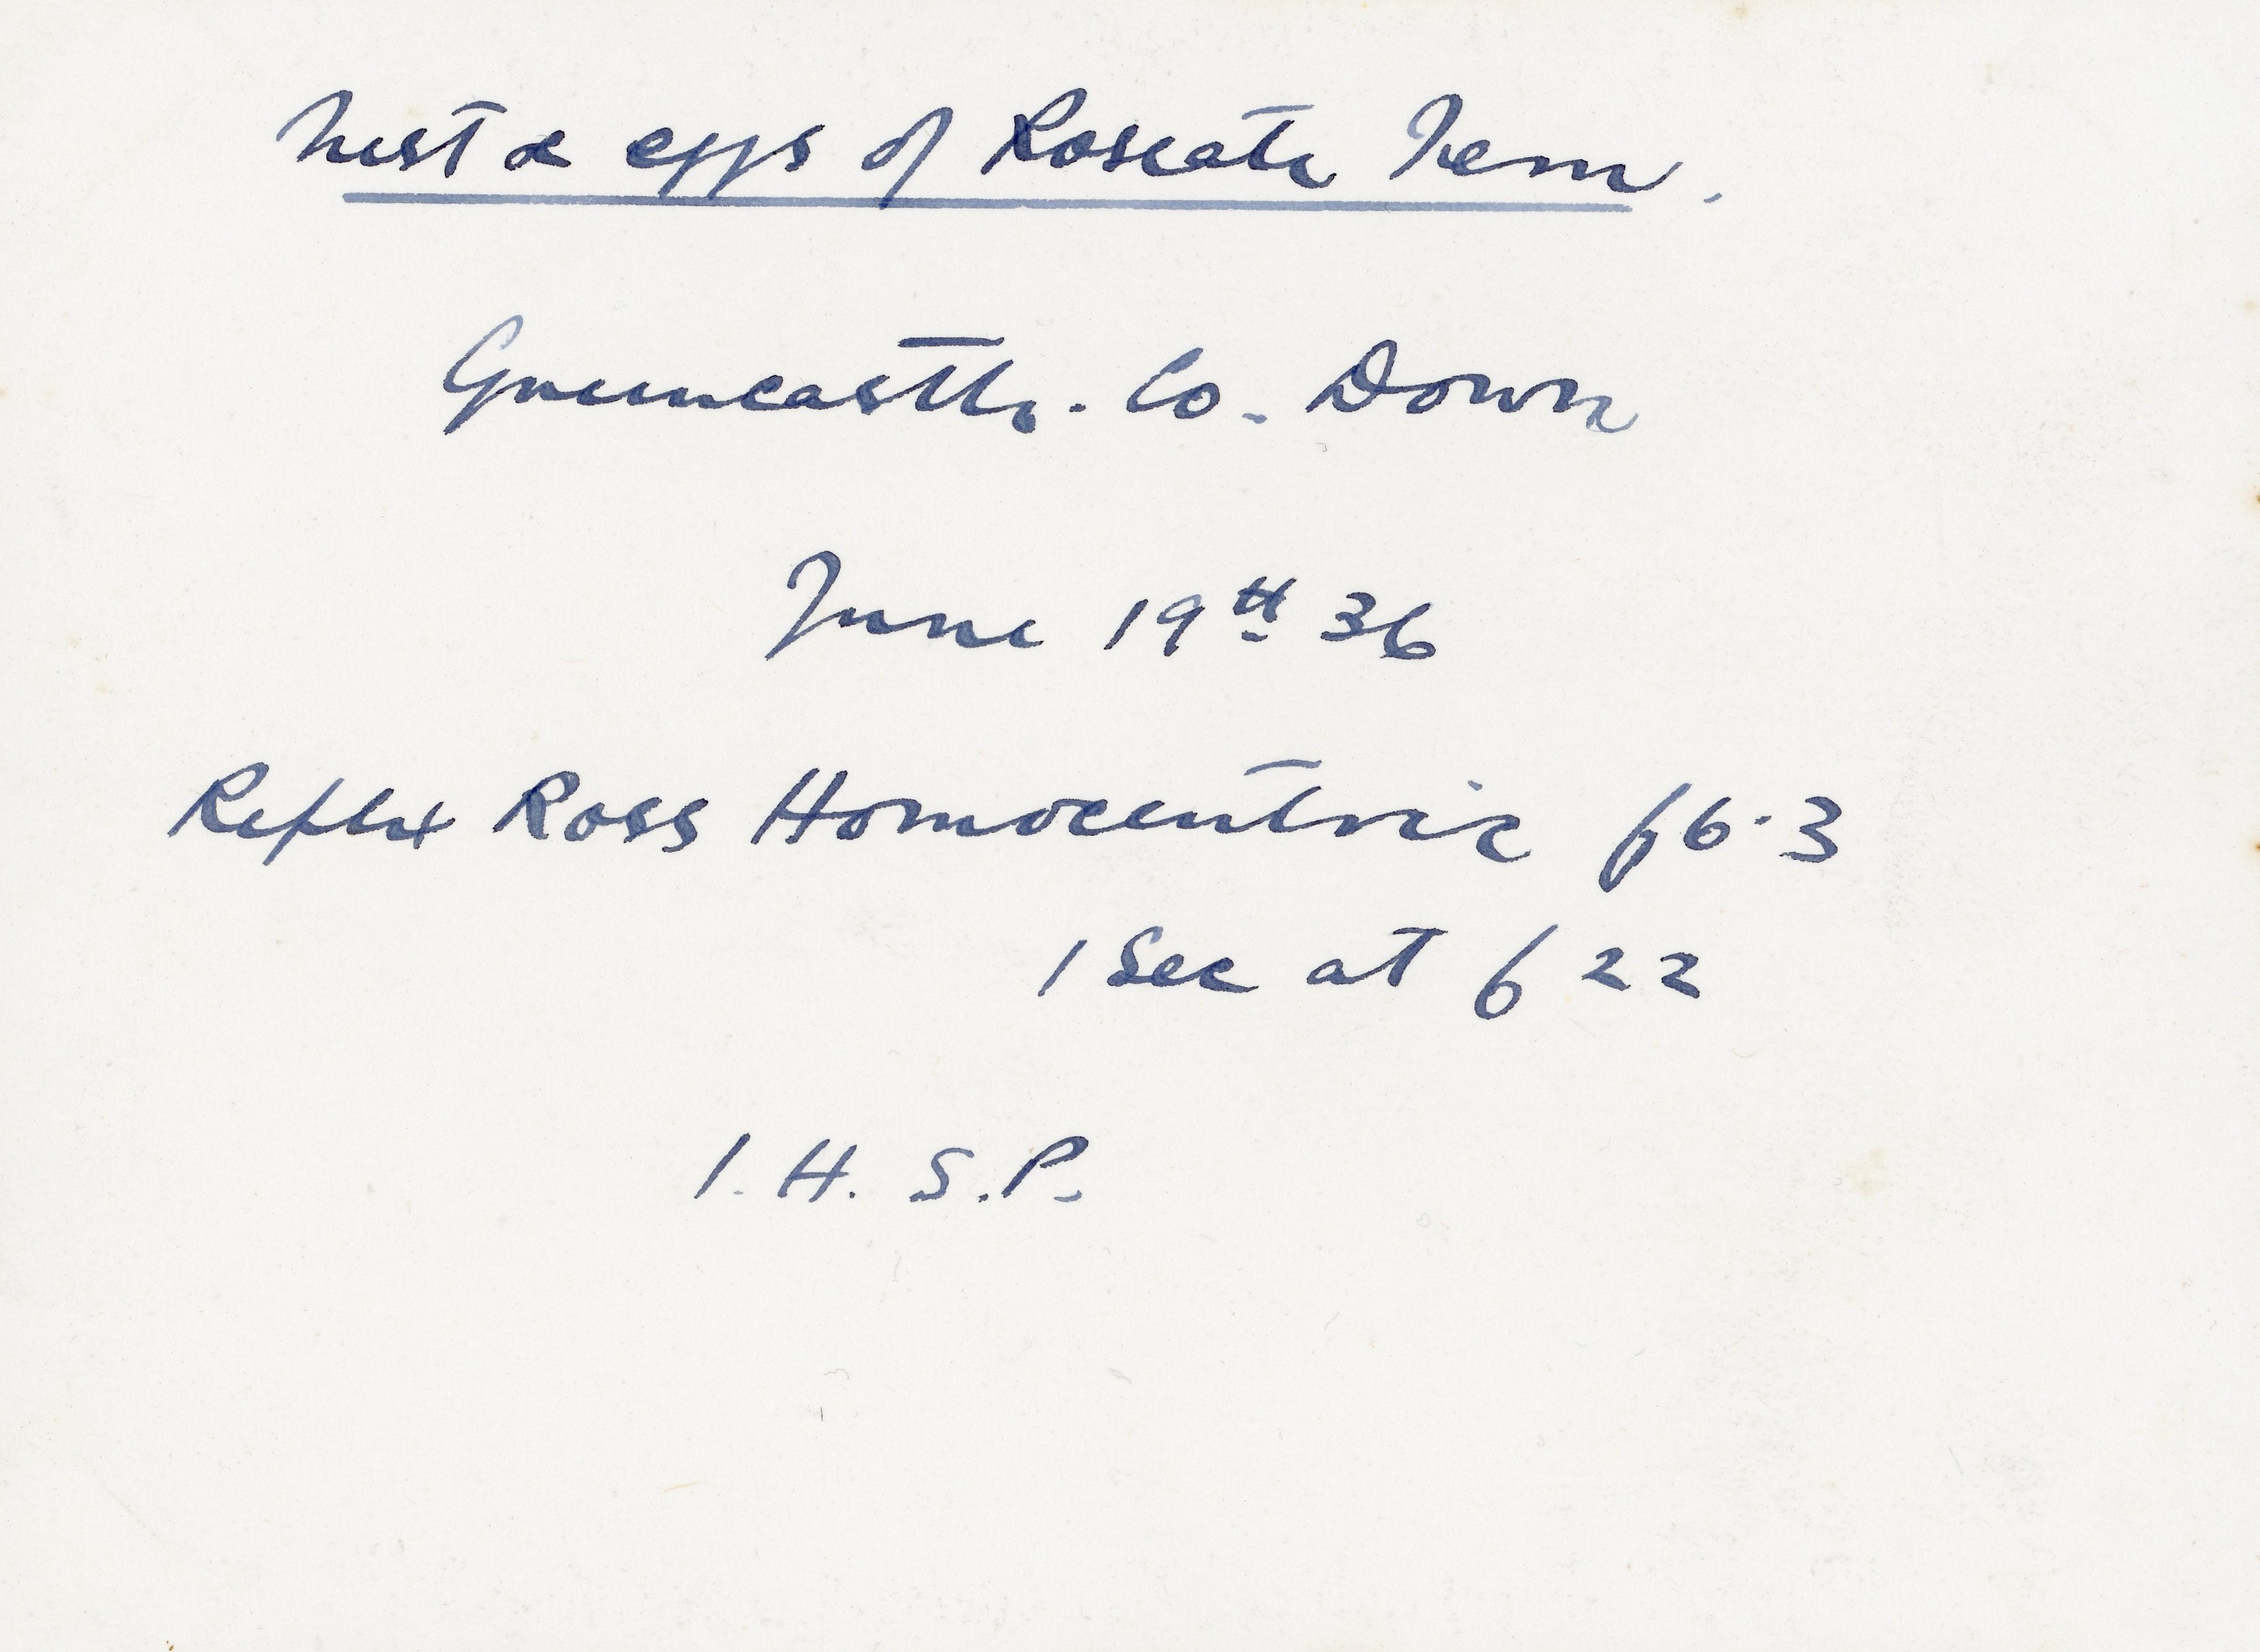 Nest & eggs of Roseate Tern.
Greencastle. Co. Down
June 19th 36
Reflex Ross Homocentric f6.3
1 Sec at f 22
I. H. S. P.